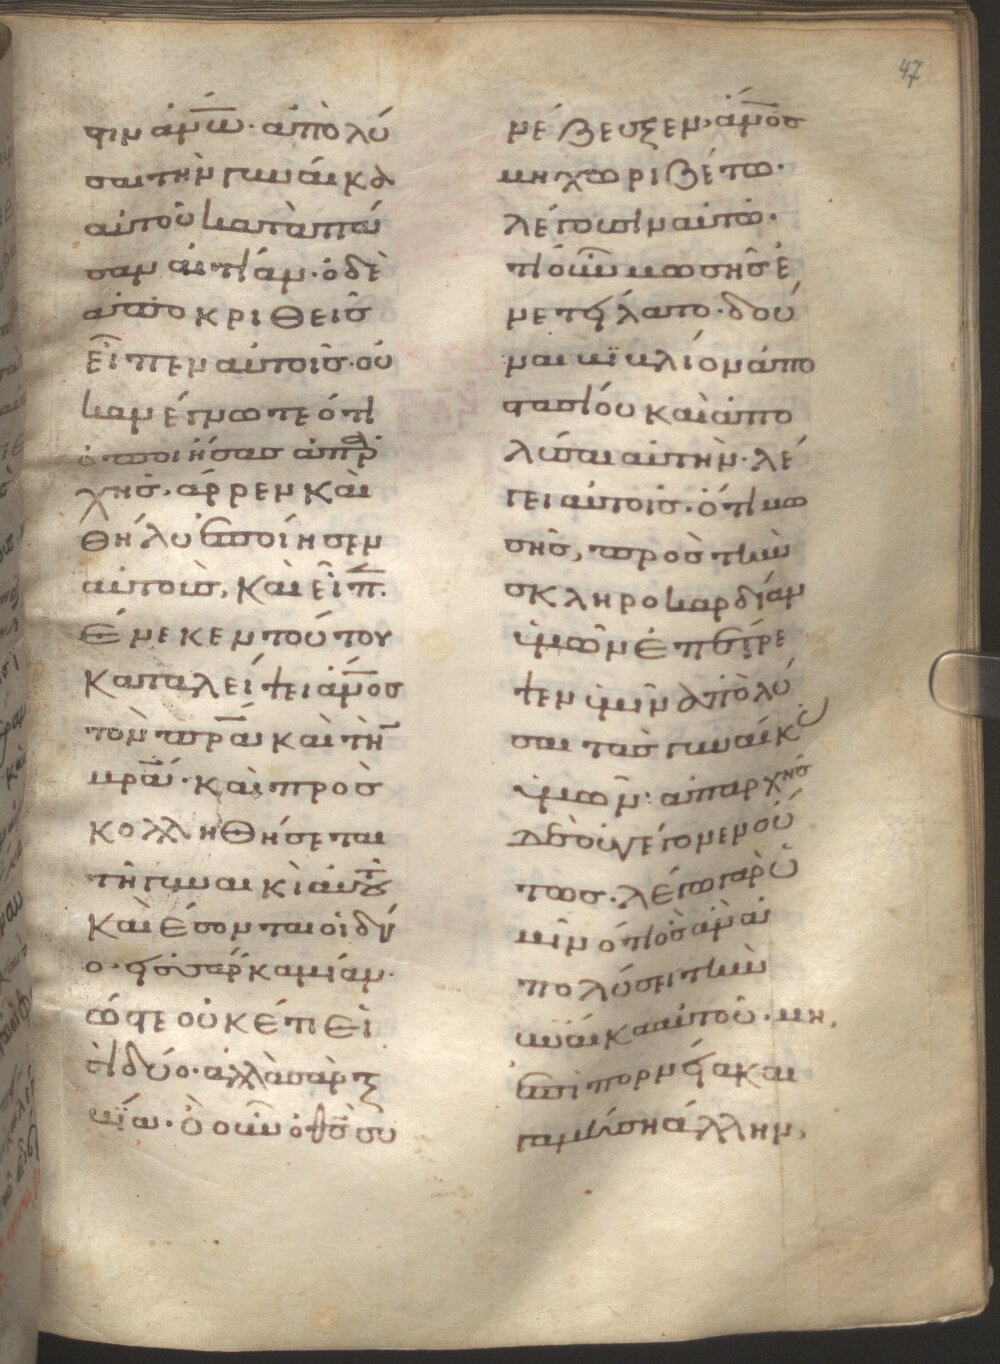 47
στιν ἀν̅ω̅· ἀπολύ
σαι τὴν γυναίκα
αὐτοῦ κατὰ πᾶ
σαν αἰτίαν· ὁ δὲ
ἀποκριθεὶς
εἶπεν αὐτοῖς· οὐ
κ ἀνέγνωτε ὅτι
ὁ ποιήσας ἀπ' ἀρ
χῆς, ἄρρεν καὶ
θῆλυ ἐποίησεν
αὐτοὺς, καὶ εἶπ.
ἕνεκεν τούτου
καταλείψει ἄν̅ο̅σ̅
τὸν πρ̅α̅ καὶ τὴν
μρ̅α̅· καὶ προσ
κολληθήσεται
τῇ γυναικὶ αὐτοῦ
καὶ ἔσονται οἱ δύ
ο· εἰς σάρκα μίαν·
ὥστε οὐκέτι εἰ
σὶ δύο· ἀλλὰ σὰρξ
μία· ὃ οὖν ὁ θ̅σ̅ συ
νέζευξεν, ἄν̅ο̅σ̅
μὴ χωριζέτω·
λέγουσιν αὐτῷ·
τί οὖν μωσῆς ἐ
νετείλατο· δοῦ
ναι βιβλίον ἀπο
στασίου καὶ ἀπο
λῦσαι αὐτήν· λέ
γει αὐτοῖς· ὅτι μω
σῆς, πρὸς τὴν
σκληροκαρδίαν
ὑμῶν ἐπέτρε
ψεν ὑμῖν ἀπολύ
σαι τὰς γυναῖκας
ὑμῶν· ἀπ' ἀρχῆς
δὲ οὐ γέγονεν οὕ
τως· λέγω γὰρ ὑ
μῖν ὅτι ὃς ἂν ἀ
πολύσει τὴν γυ
ναίκα αὐτοῦ· μὴ
ἐπὶ πορνεία καὶ
γαμήση ἄλλην,